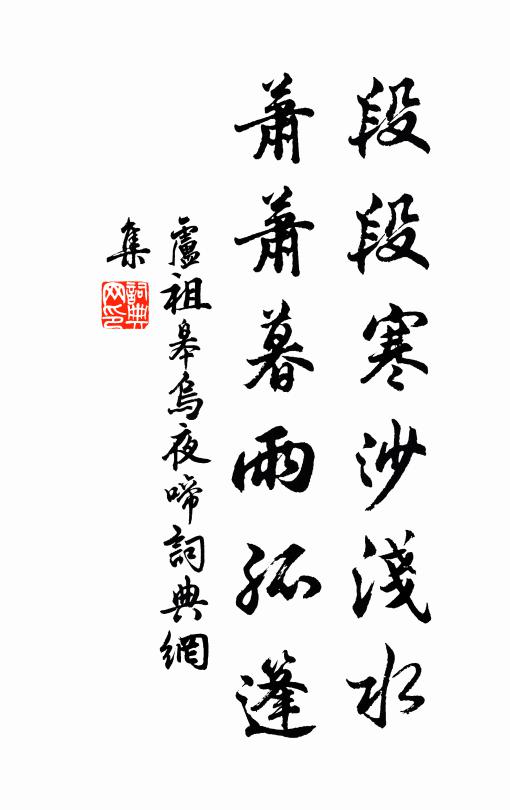 段段寒沙淺水
蕭蕭暮雨孤篷
盧祖皋烏夜啼詞典網
集
詞典網印